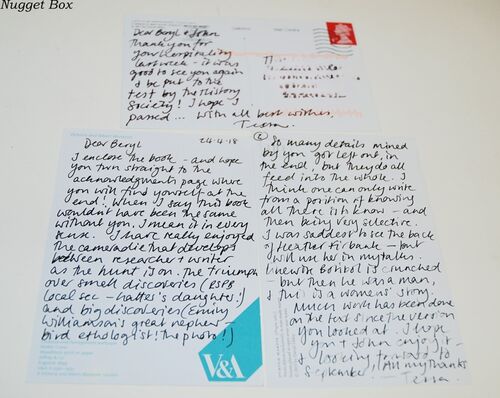 Nugget Box
Dear Beryl & John
Thank you for
your hospitality
last week - it was
good to see you again
& be put to the
test by the History
Society! I hope I
passed... with all best wishes,
Tessa.
Dear Beryl 24.4.18
I enclose the book - and hope
you turn straight to the
acknowledgments page where
you will find yourself at the
end! When I say this book
wouldn't have been the same
without you, I mean it in every
sense. I have really enjoyed
the cameraderie that develops
between researcher & writer
as the hunt is on. The triumph
over small discoveries (RSPB
local sec - hatter's daughter!)
and big discoveries (Emily
Williamson's great nephew -
bird ethologist! The photo!)
V&A
So many details mined
by you got left one, in
the end, but they do all
feed into the whole. I
think one can only write
from a position of knowing
all there is to know - and
then being very selective.
I was saddest to see the back
of Heather Firbank - but
will use her in my talks.
Likewise Bottol is crunched
- but then he was a man,
& this is a womens' story.
Much work has been done
on the text since the version
you looked at. I hope
you & John enjoy it -
& looking forward to
September! All my thanks
Tessa.